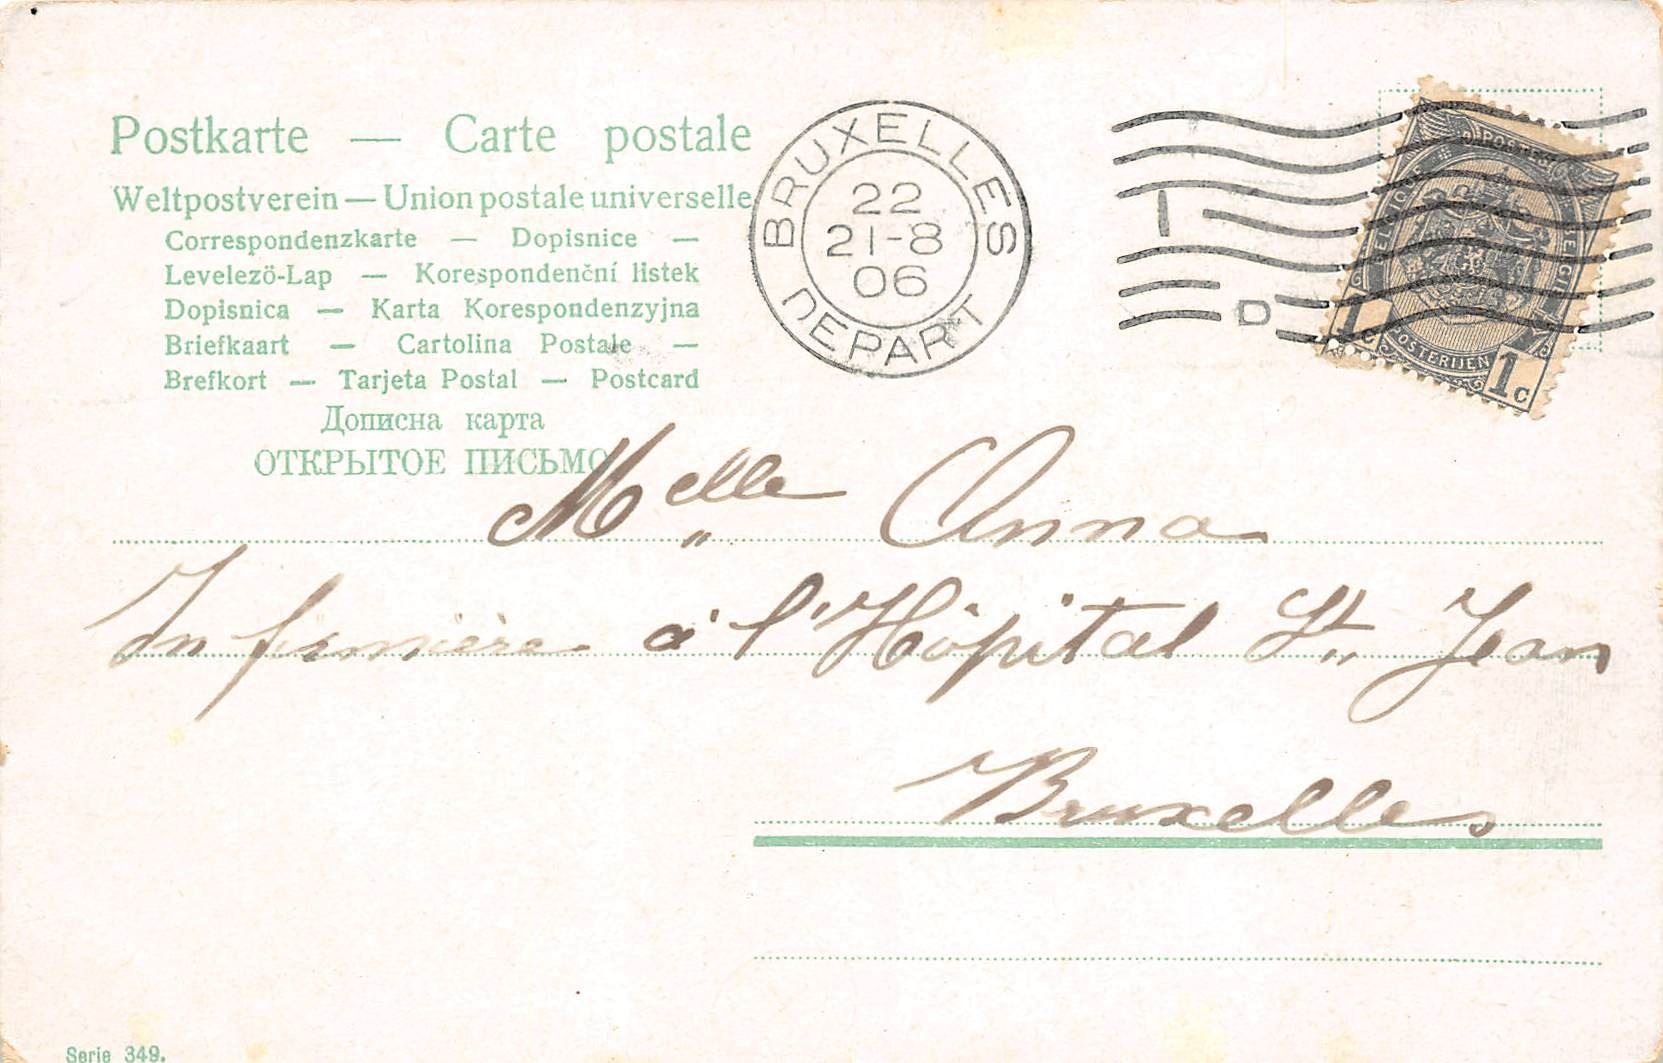 Postkarte — Carte postale
Weltpostverein — Union postale universelle
Correspondenzkarte — Dopisnice —
Levelezö-Lap — Korespondenční listek
Dopisnica — Karta Korespondenzyjna
Briefkaart — Cartolina Postale —
Brefkort — Tarjeta Postal — Postcard
Дописна карта
ОТКРЫТОЕ ПИСЬМО
BRUXELLES
22
21-8
06
DEPART
I
D
OSTERIJEN
1c
1c
Melle Anna
Infirmière à l'Hôpital St Jean
Bruxelles
Serie 349.